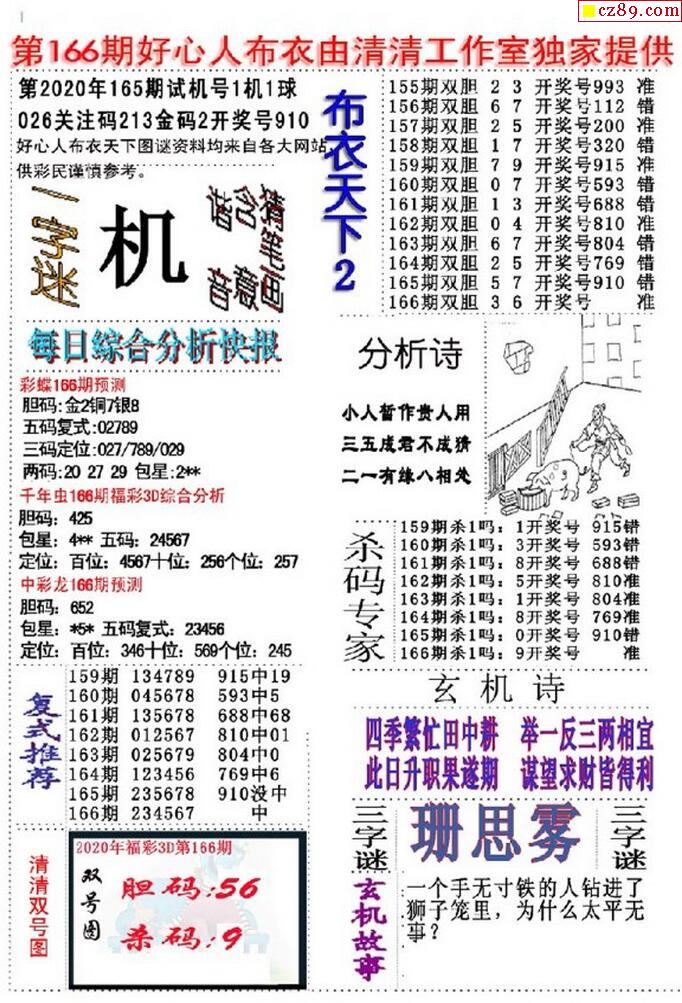 cz89.com
第166期好心人布衣由清清工作室独家提供
第2020年165期试机号1机1球
026关注码213金码2开奖号910
好心人布衣天下图谜资料均来自各大网站,
供彩民谨慎参考。
一字迷
机
谐音
含意
猜笔画
布衣天下2
155期双胆 2 3 开奖号993 准
156期双胆 6 7 开奖号112 错
157期双胆 2 5 开奖号200 准
158期双胆 1 7 开奖号320 错
159期双胆 7 9 开奖号915 准
160期双胆 0 7 开奖号593 错
161期双胆 1 3 开奖号688 错
162期双胆 0 4 开奖号810 准
163期双胆 6 7 开奖号804 错
164期双胆 2 5 开奖号769 错
165期双胆 5 7 开奖号910 错
166期双胆 3 6 开奖号 准
每日综合分析快报
彩蝶166期预测
胆码:金2铜7银8
五码复式:02789
三码定位:027/789/029
两码:20 27 29 包星:2**
千年虫166期福彩3D综合分析
胆码: 425
包星: 4** 五码: 24567
定位: 百位: 4567十位: 256个位: 257
中彩龙166期预测
胆码: 652
包星: *5* 五码复式: 23456
定位: 百位: 346十位: 569个位: 245
分析诗
小人暂作贵人用
三五成君不成猜
二一有缘八相处
杀码专家
159期杀1吗: 1开奖号 915错
160期杀1吗: 3开奖号 593错
161期杀1吗: 8开奖号 688错
162期杀1吗: 5开奖号 810准
163期杀1吗: 1开奖号 804准
164期杀1吗: 8开奖号 769准
165期杀1吗: 0开奖号 910错
166期杀1吗: 9开奖号 准
复式推荐
159期 134789 915中19
160期 045678 593中5
161期 135678 688中68
162期 012567 810中01
163期 025679 804中0
164期 123456 769中6
165期 235678 910没中
166期 234567 中
玄机诗
四季繁忙田中耕 举一反三两相宜
此日升职果遂期 谋望求财皆得利
三字谜
珊思雾
三字谜
清清双号图
2020年福彩3D第166期
双号图
胆码:56
杀码:9
玄机故事
一个手无寸铁的人钻进了
狮子笼里，为什么太平无
事?